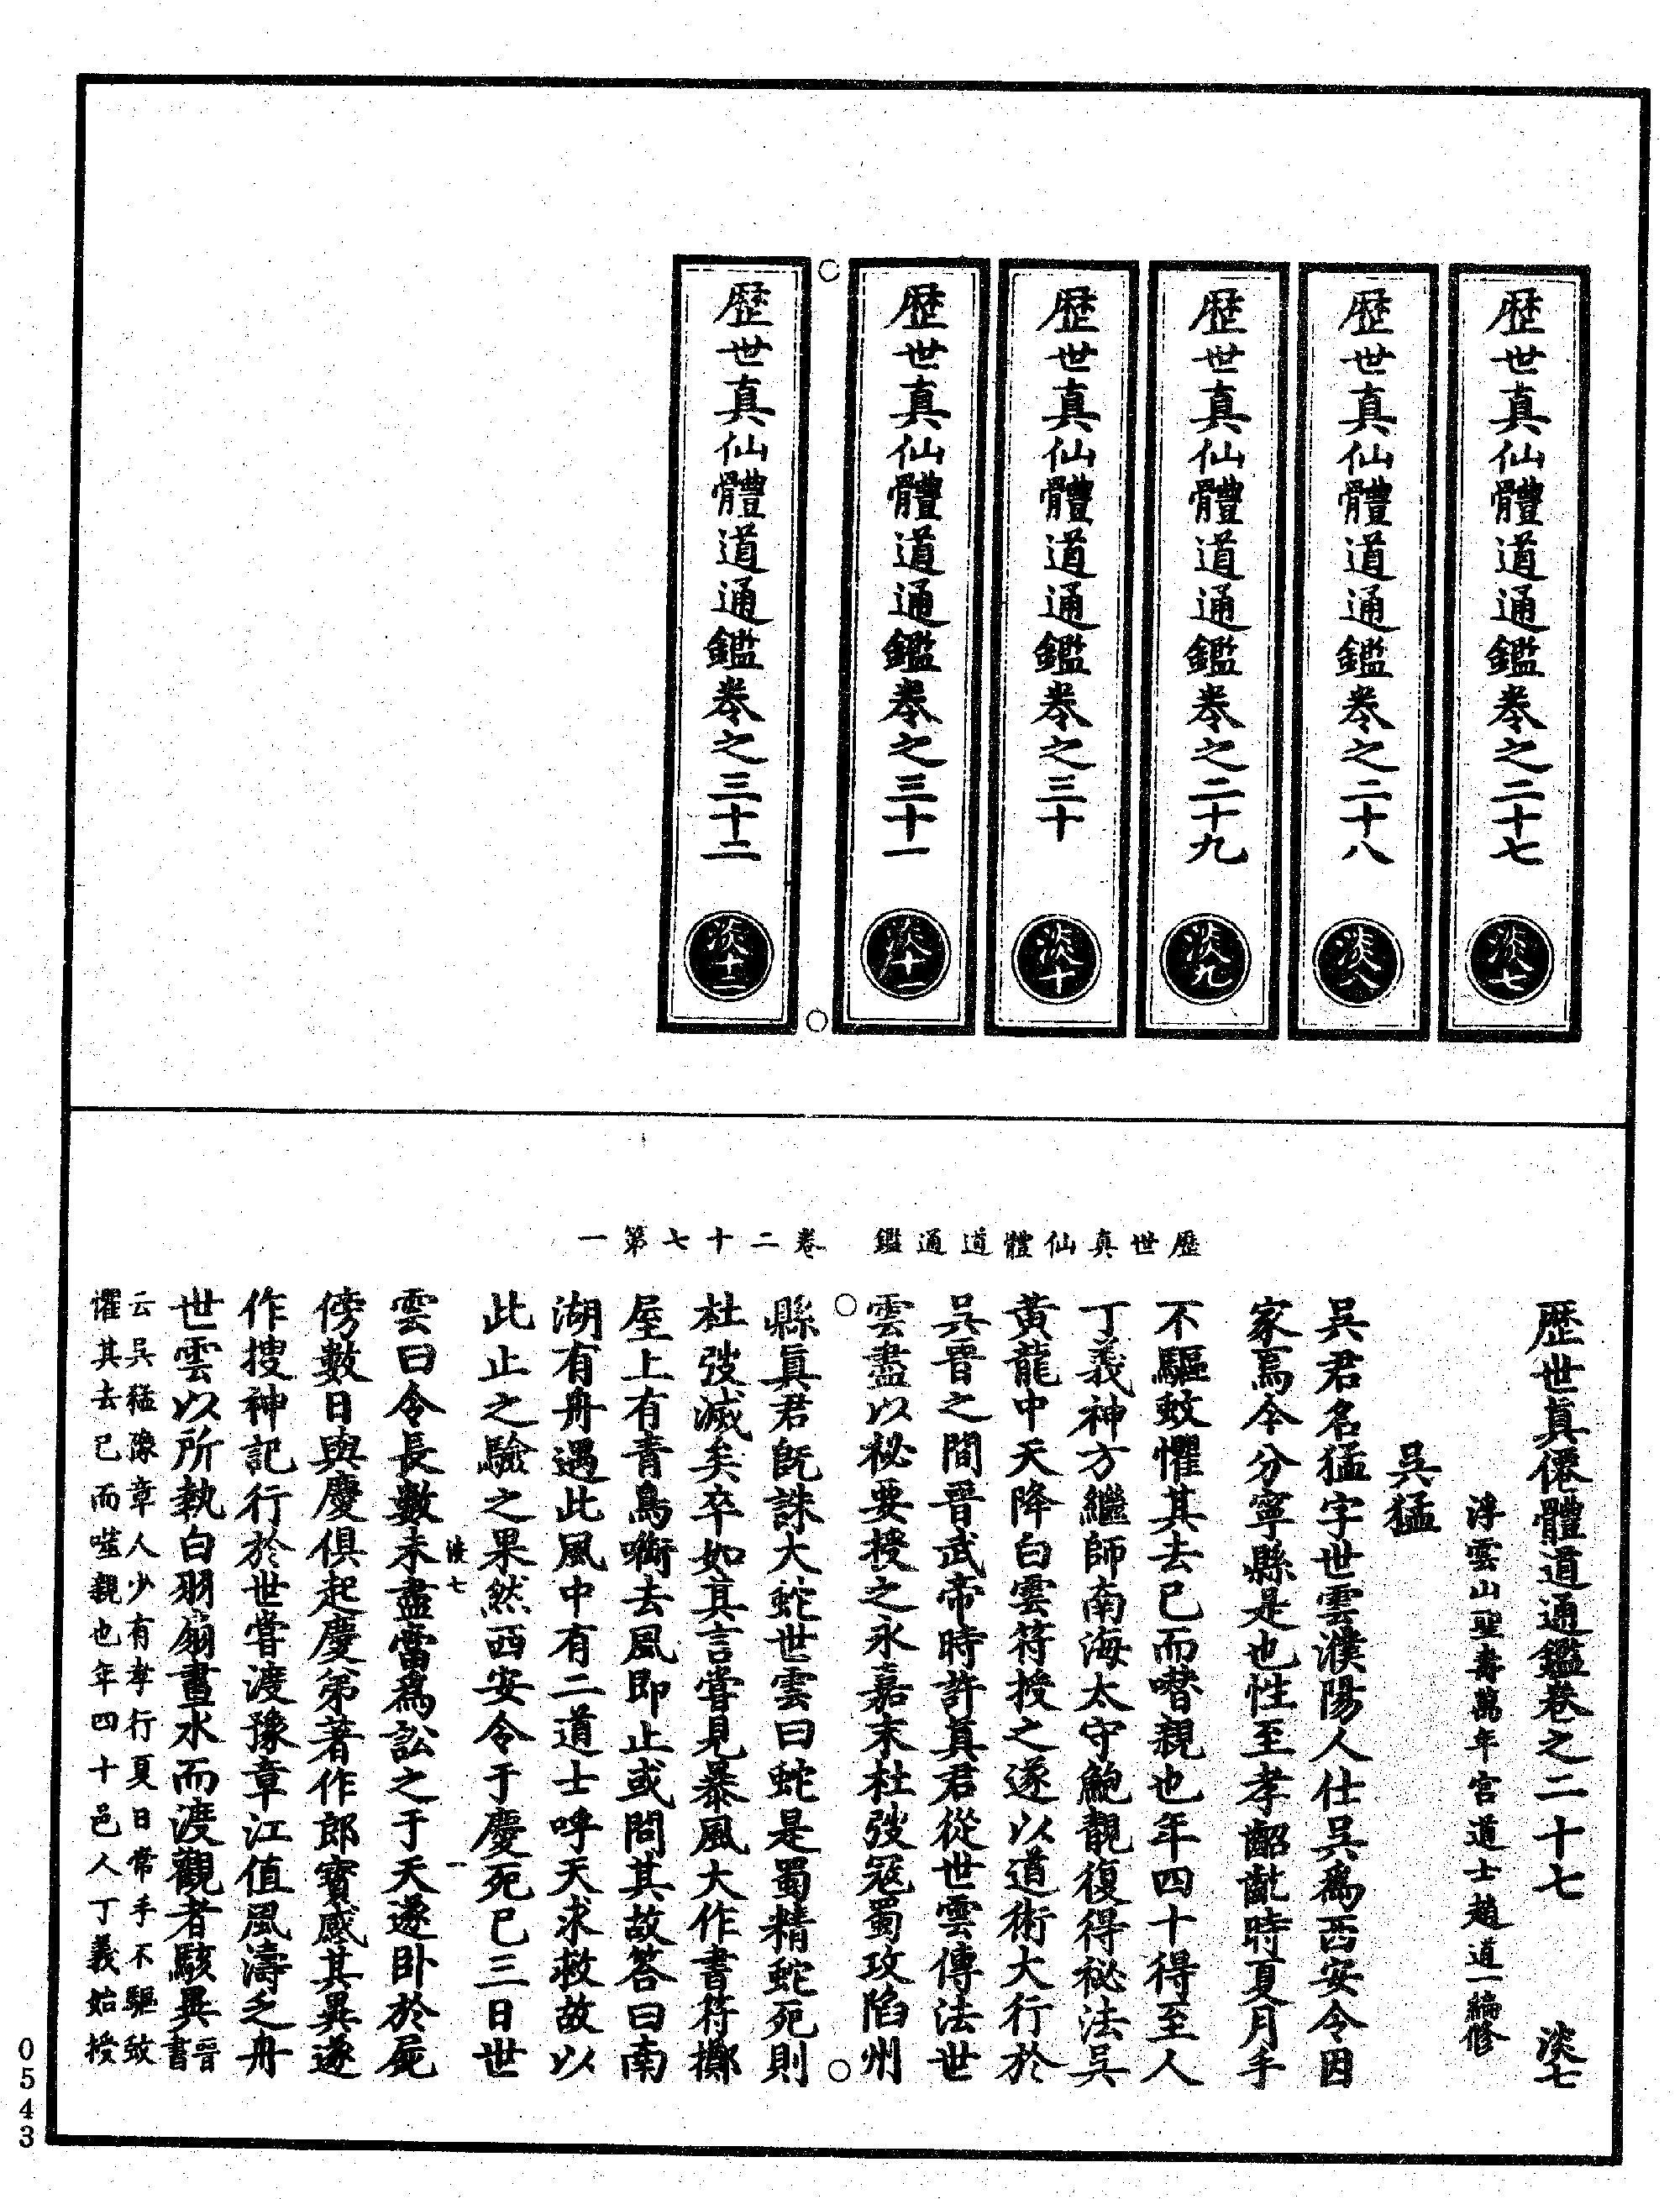 歷世真仙體道通鑑卷之二十七 淡七
歷世真仙體道通鑑卷之二十八 淡八
歷世真仙體道通鑑卷之二十九 淡九
歷世真仙體道通鑑卷之三十 淡十
歷世真仙體道通鑑卷之三十一 淡十一
歷世真仙體道通鑑卷之三十二 淡十二
歷世真仙體道通鑑 卷二十七第一
歷世真僊體道通鑑卷之二十七 淡七
浮雲山聖壽萬年宮道士趙道一編修
吳猛
吳君名猛字世雲濮陽人仕吳為西安令因
家焉今分寧縣是也性至孝齠齔時夏月手
不驅蚊懼其去己而噆親也年四十得至人
丁義神方繼師南海太守鮑靚復得秘法吳
黃龍中天降白雲符授之遂以道術大行於
吳晉之間晉武帝時許真君從世雲傳法世
雲盡以祕要授之永嘉末杜弢寇蜀攻陷州
縣真君既誅大蛇世雲曰蛇是蜀精蛇死則
杜弢滅矣卒如其言嘗見暴風大作書符擲
屋上有青鳥啣去風即止或問其故答曰南
湖有舟遇此風中有二道士呼天求救故以
此止之驗之果然西安令于慶死已三日世
淡七 一
雲曰令長數未盡當為訟之于天遂臥於屍
傍數日與慶俱起慶弟著作郎寶感其異遂
作搜神記行於世嘗渡豫章江值風濤乏舟
世雲以所執白羽扇畫水而渡觀者駭異晉書
云吳猛豫章人少有孝行夏日常手不驅蚊
懼其去己而噬親也年四十邑人丁義始授
0543